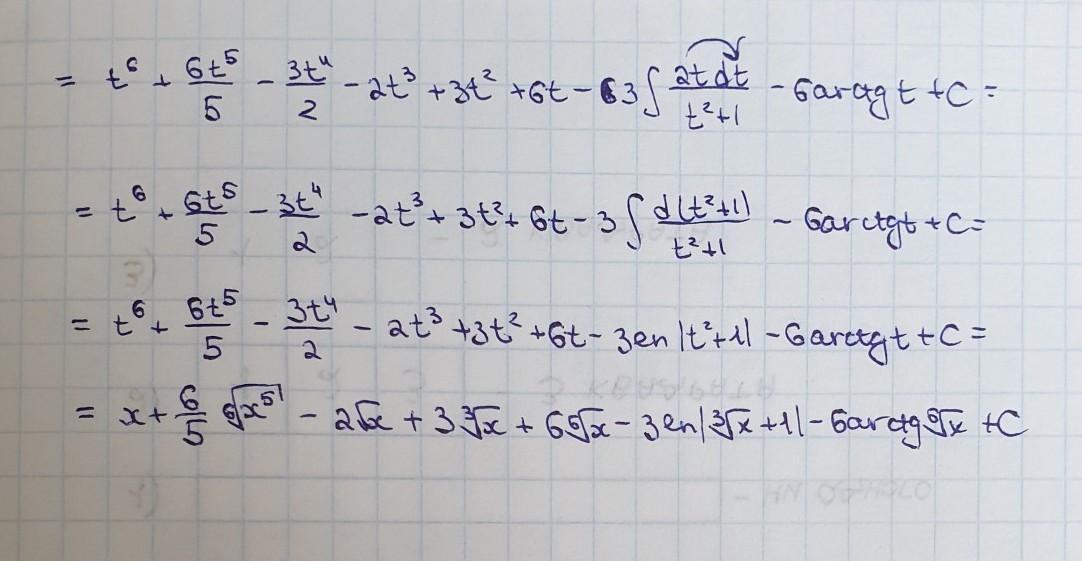 = t⁶ + 6t⁵/5 - 3t⁴/2 - 2t³ + 3t² + 6t - 3∫ 2t dt/(t²+1) - 6arctg t + C =
= t⁶ + 6t⁵/5 - 3t⁴/2 - 2t³ + 3t² + 6t - 3∫ d(t²+1)/(t²+1) - 6arctgt + C =
= t⁶ + 6t⁵/5 - 3t⁴/2 - 2t³ + 3t² + 6t - 3ln|t²+1| - 6arctgt + C =
= x + 6/5 ⁶√x⁵ - 2√x + 3∛x + 6⁶√x - 3ln|∛x+1| - 6arctg⁶√x + C